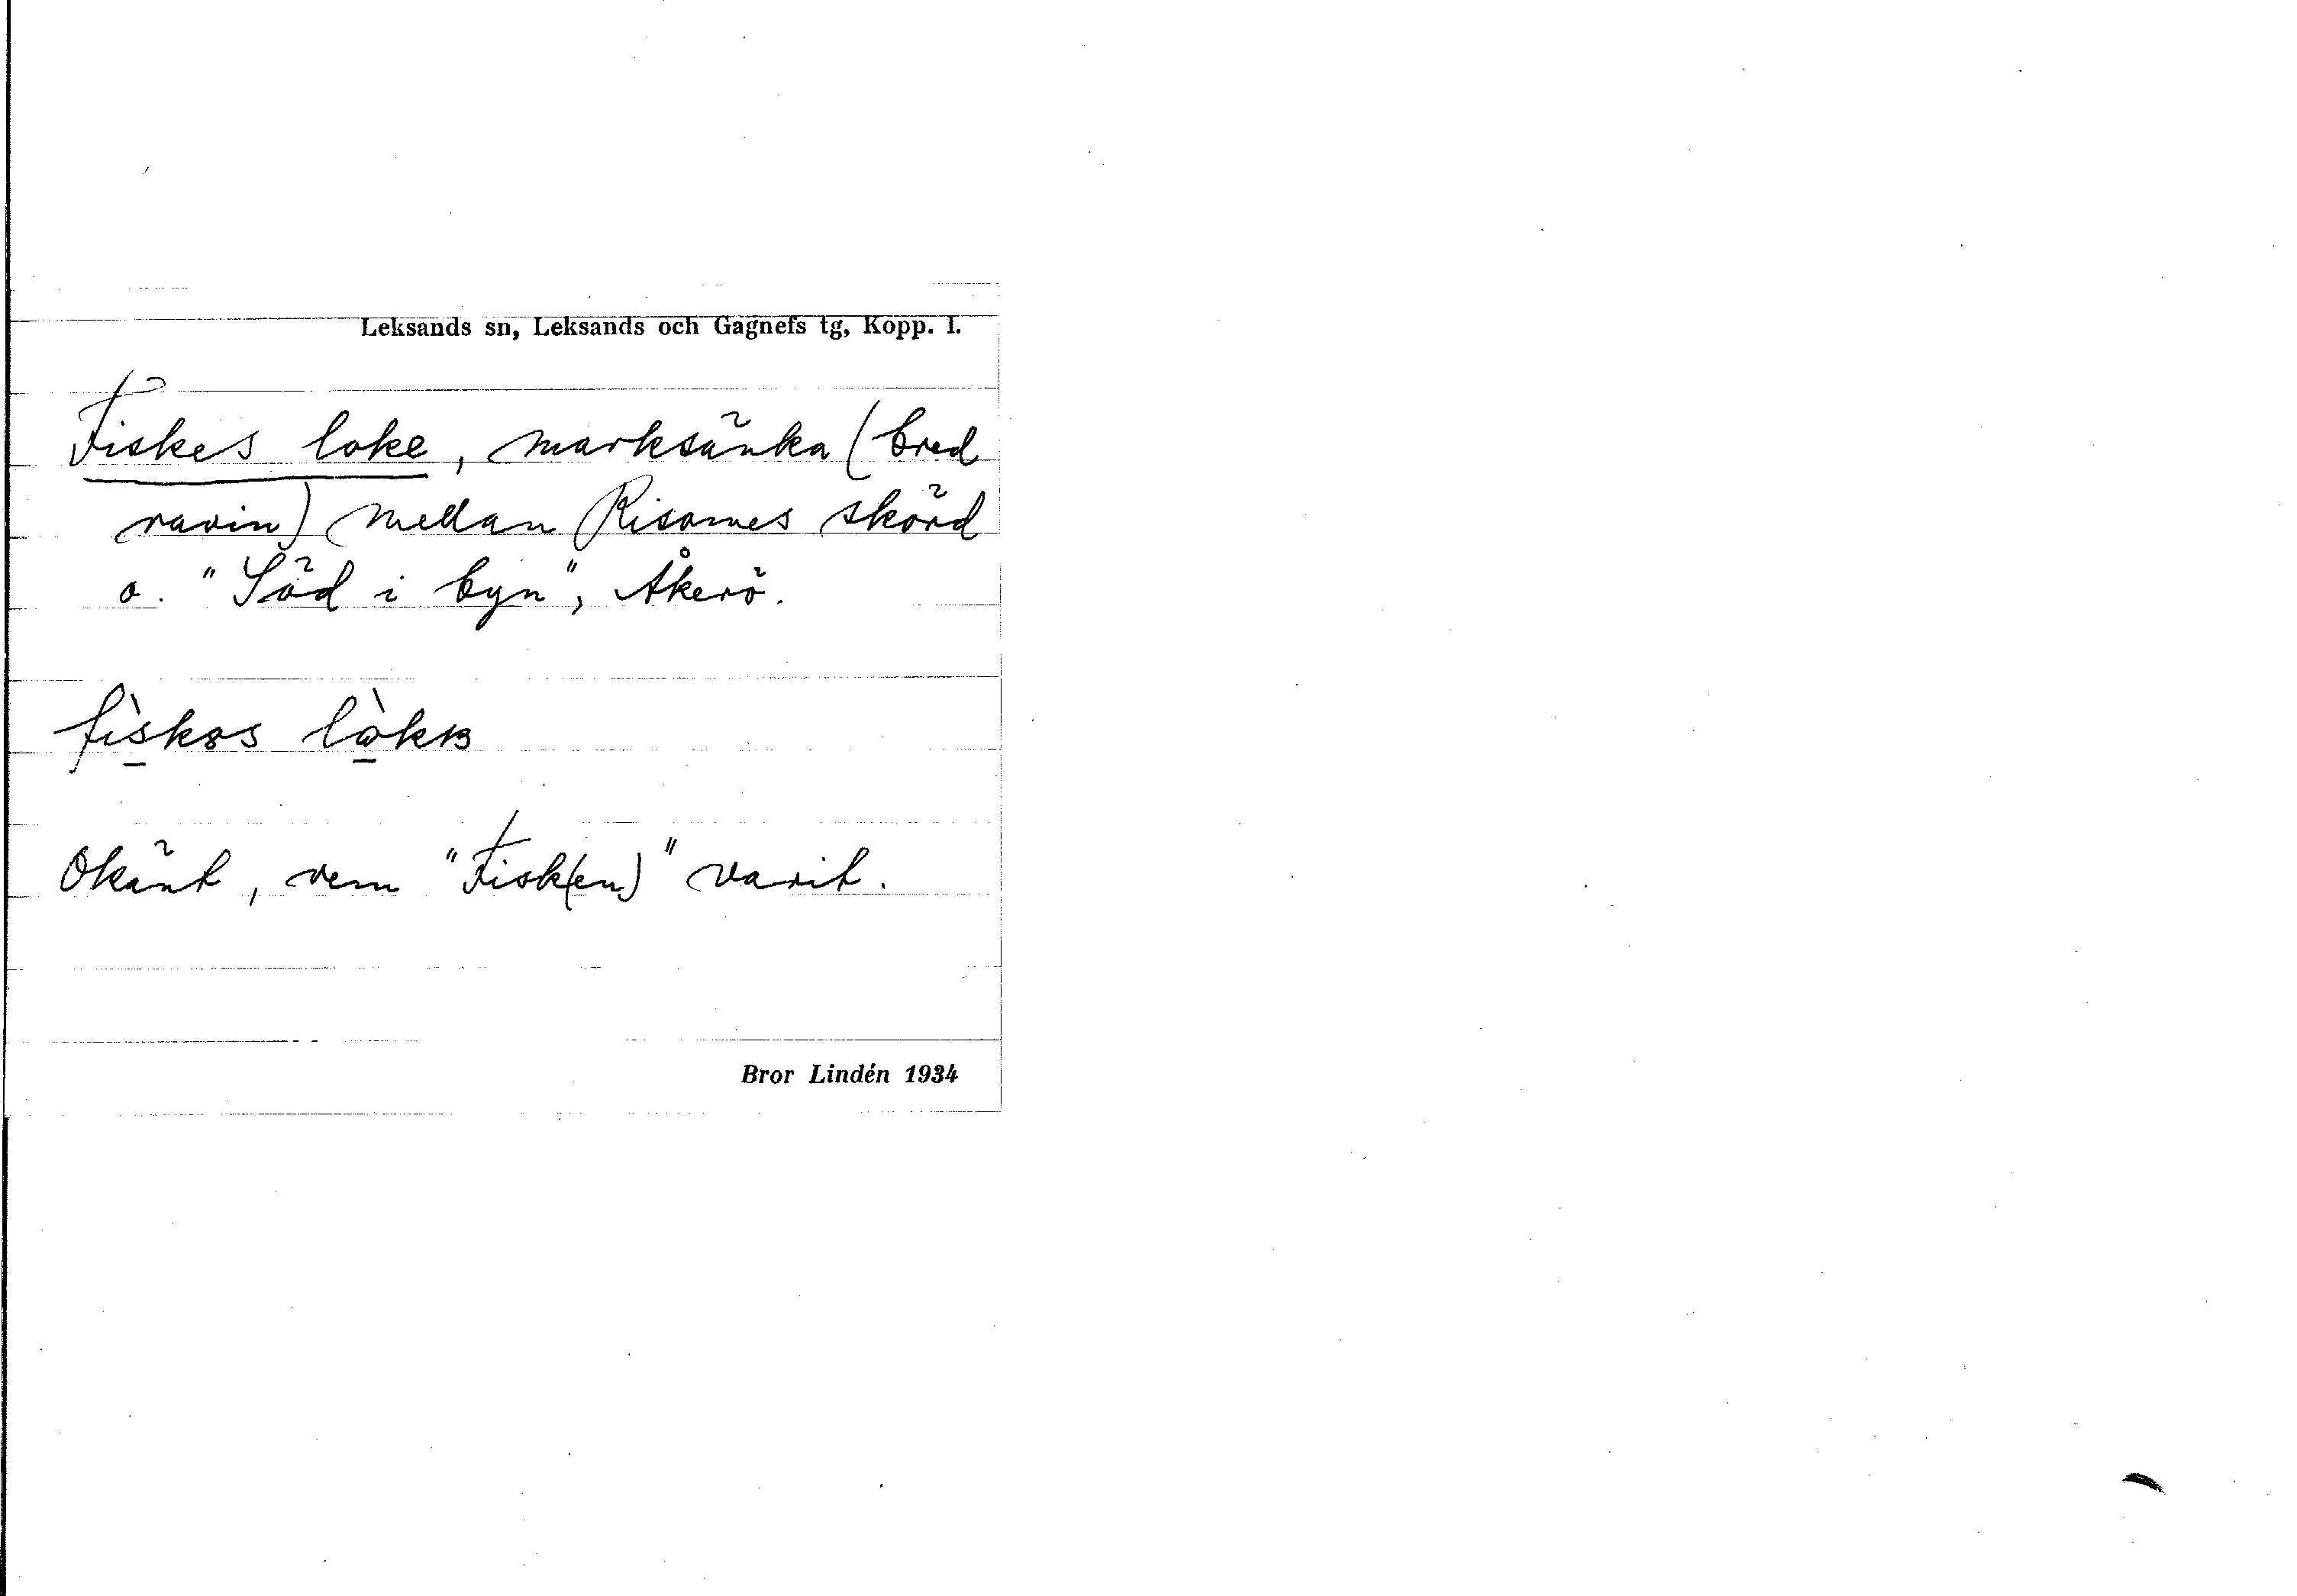 Leksands sn, Leksands och Gagnefs tg, Kopp. l.
Fiskes loke, marksänka (bred
ravin) mellan Risomes skörd
o. "Söd i byn", Åkerö.
fìskəs lòkɐ
Okänt, vem "Fisk(en)" varit.
Bror Lindén 1934